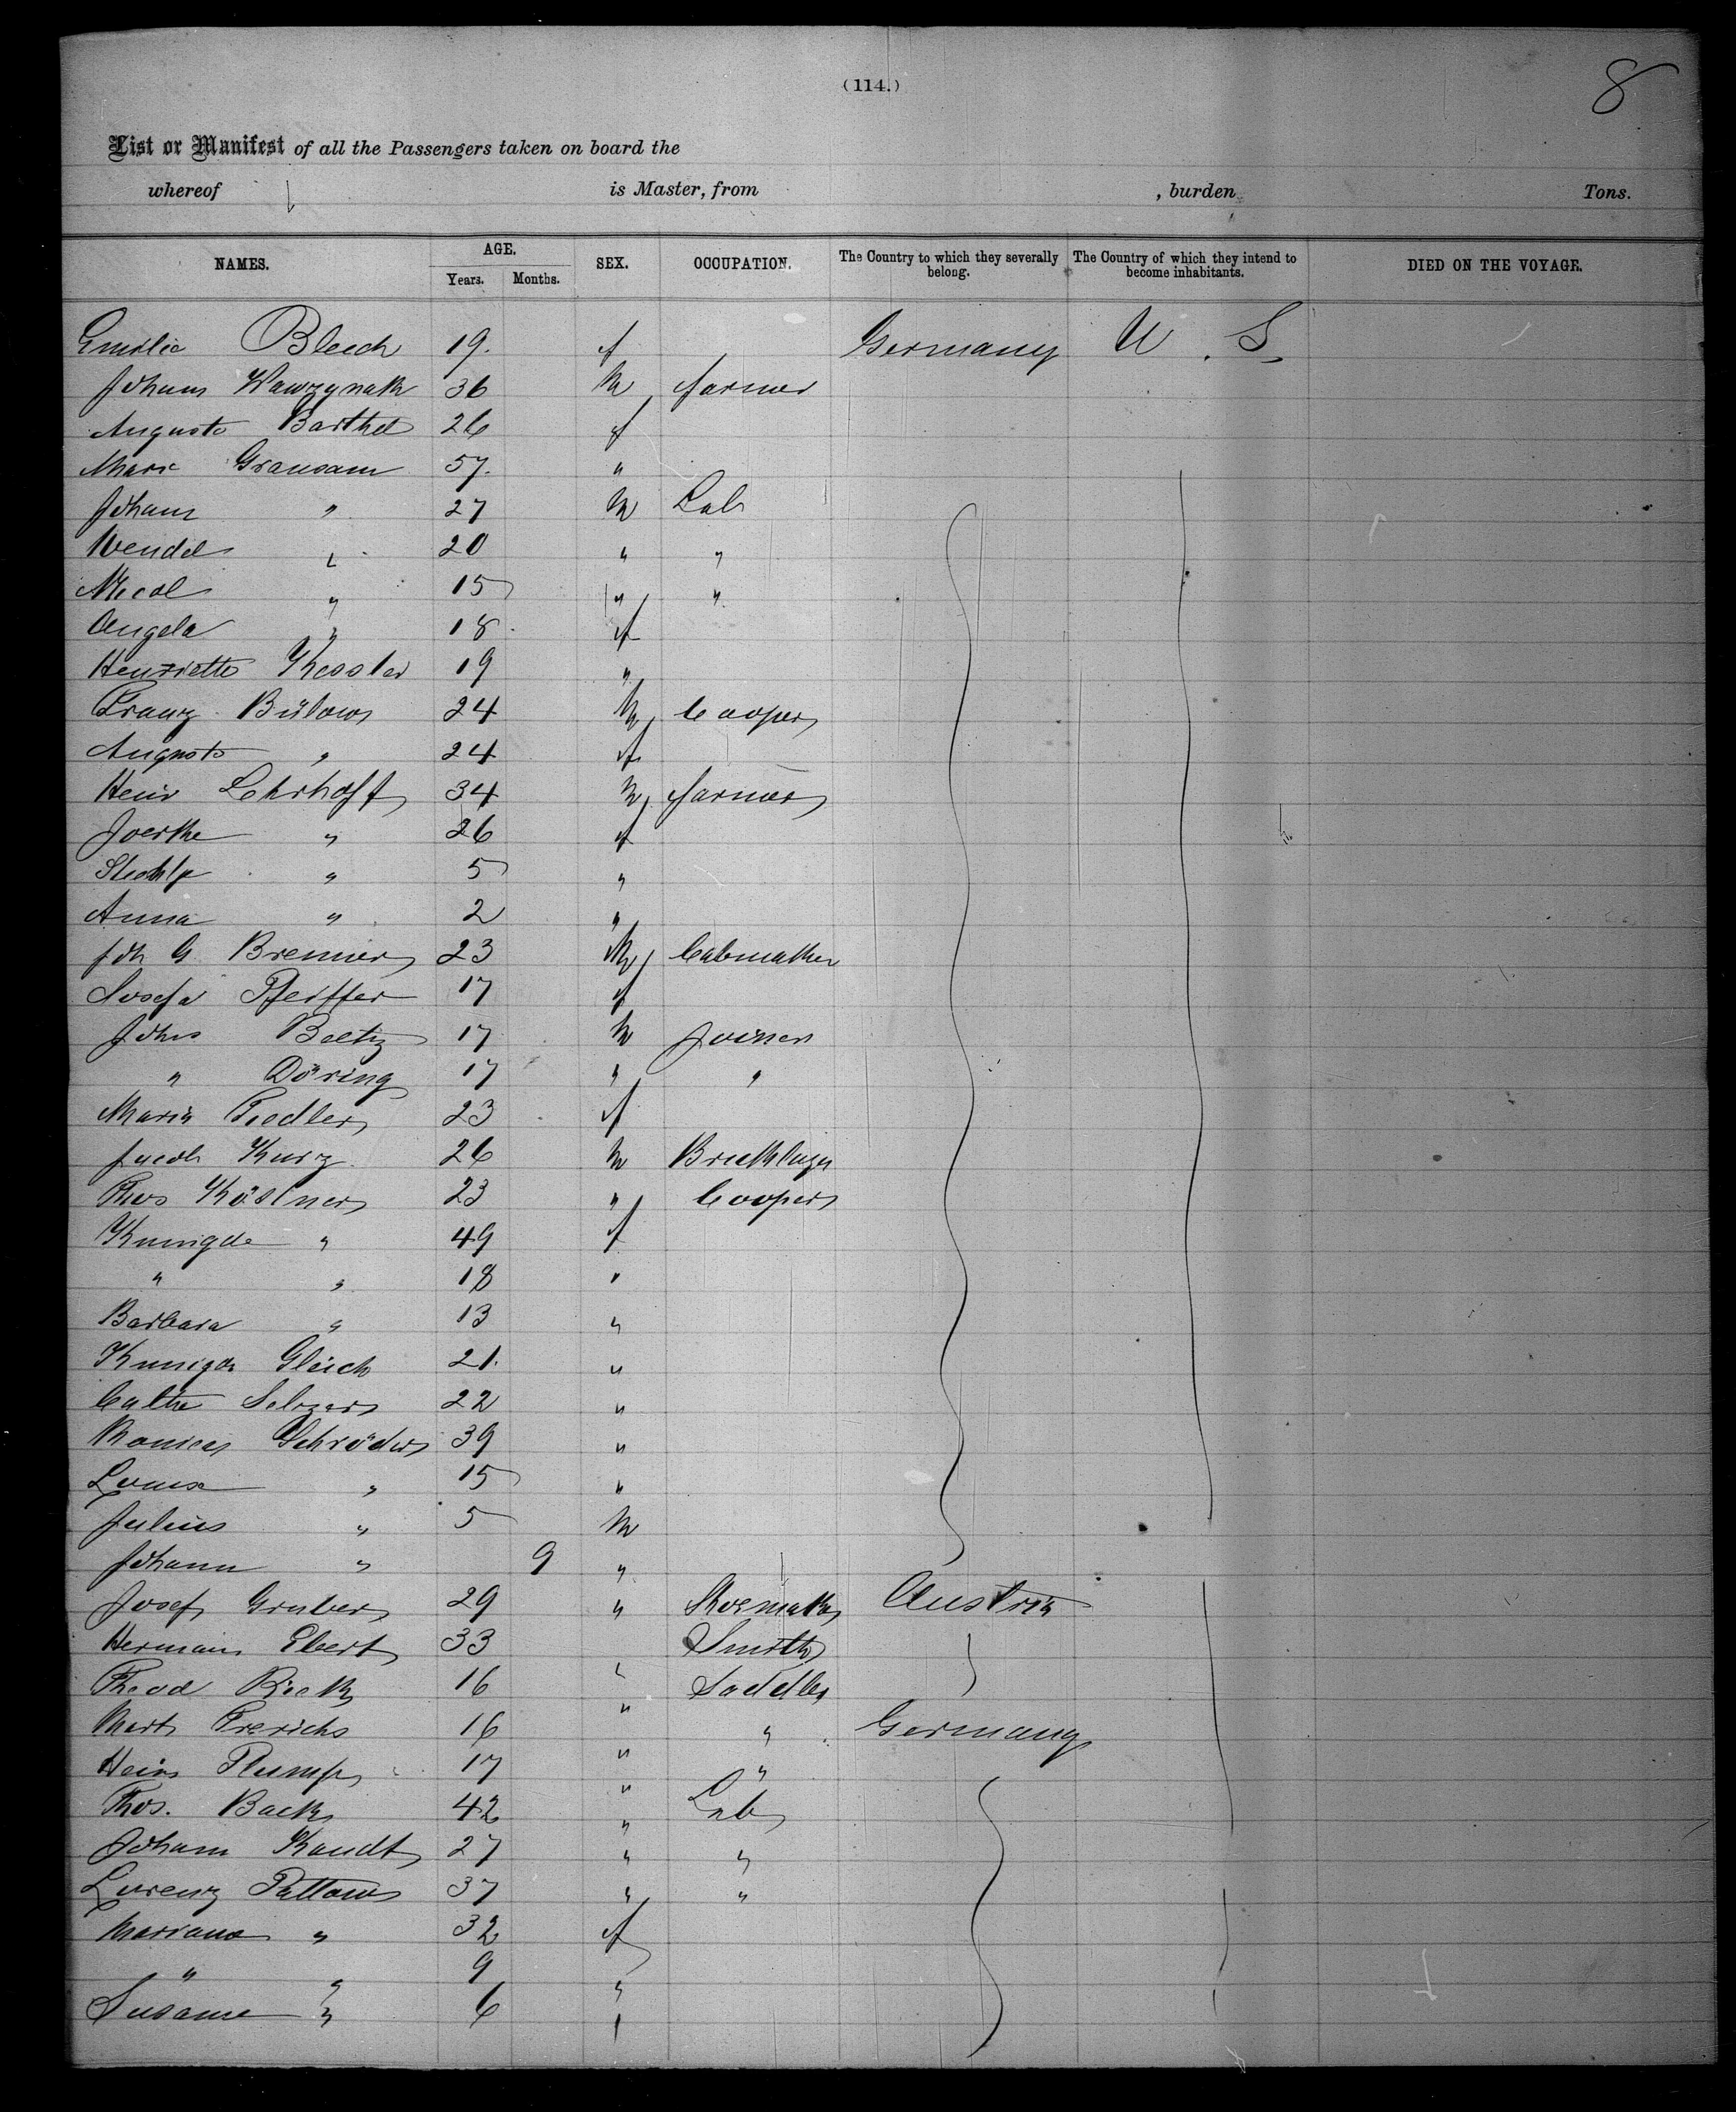 (114.)
8
List or Manifest of all the Passengers taken on board the
whereof is Master, from , burden Tons.
NAMES. AGE. Years. Months. SEX. OCCUPATION. The Country to which they severally belong. The Country of which they intend to become inhabitants. DIED ON THE VOYAGE.
Emilie Bleech 19. f Germany U. S.
Johann Wawzynak 36 M farmer
Auguste Barthel 26 f
Marie Gransam 57. "
Johann " 27 M Lab
Wendel " 20 " "
Nicol " 15 " "
Angela " 18 f
Henriette Kessler 19 "
Franz Bülow 24 M Cooper
Auguste " 24 f
Heinr Lehrhoff 34 M farmer
Joerthe " 26 f
" 5 "
Anna " 2 "
Joh G Brenner 23 M Cabmaker
Josefa Pfeiffer 17 f
Johs Beltz 17 M Joiner
" Döring 17 " "
Maria Fiedler 23 f
Jacob Kurz 26 M Bricklayer
Thos Köstner 23 " Cooper
Kunigde " 49 f
" " 18 "
Barbara " 13 "
Kunigde Gleich 21. "
Cathe Selzer 22 "
Schröder 39 "
Louise " 15 "
Julius " 5 M
Johann " 9 "
Josef Gruber 29 " Shoemaker Austria
Hermann Ebert 33 " Smith
Theod Rieck 16 " Saddler
Mart Frerichs 16 " " Germany
Heinr Plump 17 " "
Thos. Back 42 " Lab
Johann Kandt 27 " "
Lorenz Pattow 37 " "
Mariane " 32 f
" " 9 "
Susanne " 6 "